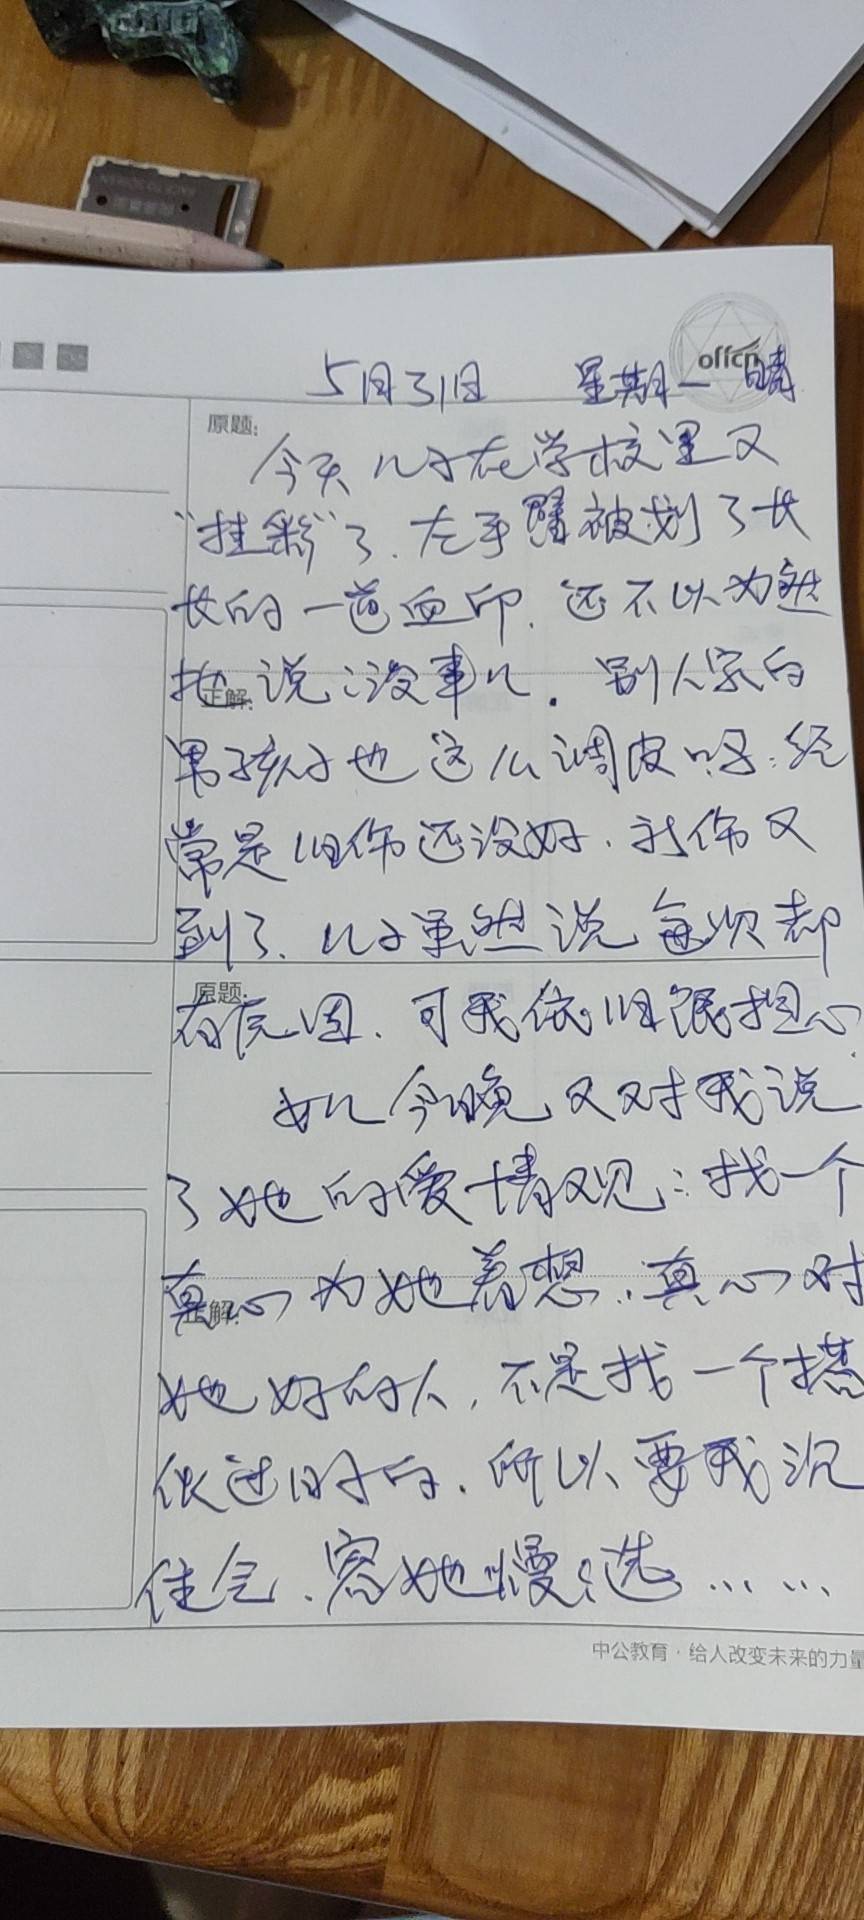 offcn
5月31日 星期一 晴
原题:
今天儿子在学校里又
“挂彩”了.左手臂被划了长
长的一道血印.还不以为然
地说:没事儿.别人家的
正解:
男孩子也这么调皮吗:经
常是旧伤还没好.新伤又
到了.儿子虽然说每次都
原题:
有原因.可我依旧很担心.
女儿今晚又对我说
了她的爱情观:找一个
真心为她着想.真心对
正解:
她好的人,不是找一个搭
伙过日子的.所以要我沉
住气.容她慢慢选……
中公教育·给人改变未来的力量